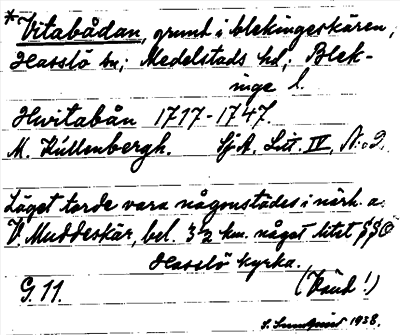 *Vitabådan, grund i blekingeskären,
Hasslö sn; Medelstads hd; Blek-
inge l.
Hwitabån 1717-1747.
M. Küllenbergh. Sj.A. Litt. IV, N:o 2.
Läget torde vara någonstädes i närh. a.
V. Muddeskär, bel. 3½ km. något litet SSO
Hasslö kyrka.
G. 11. (Vänd!)
S. Lundquist 1938.